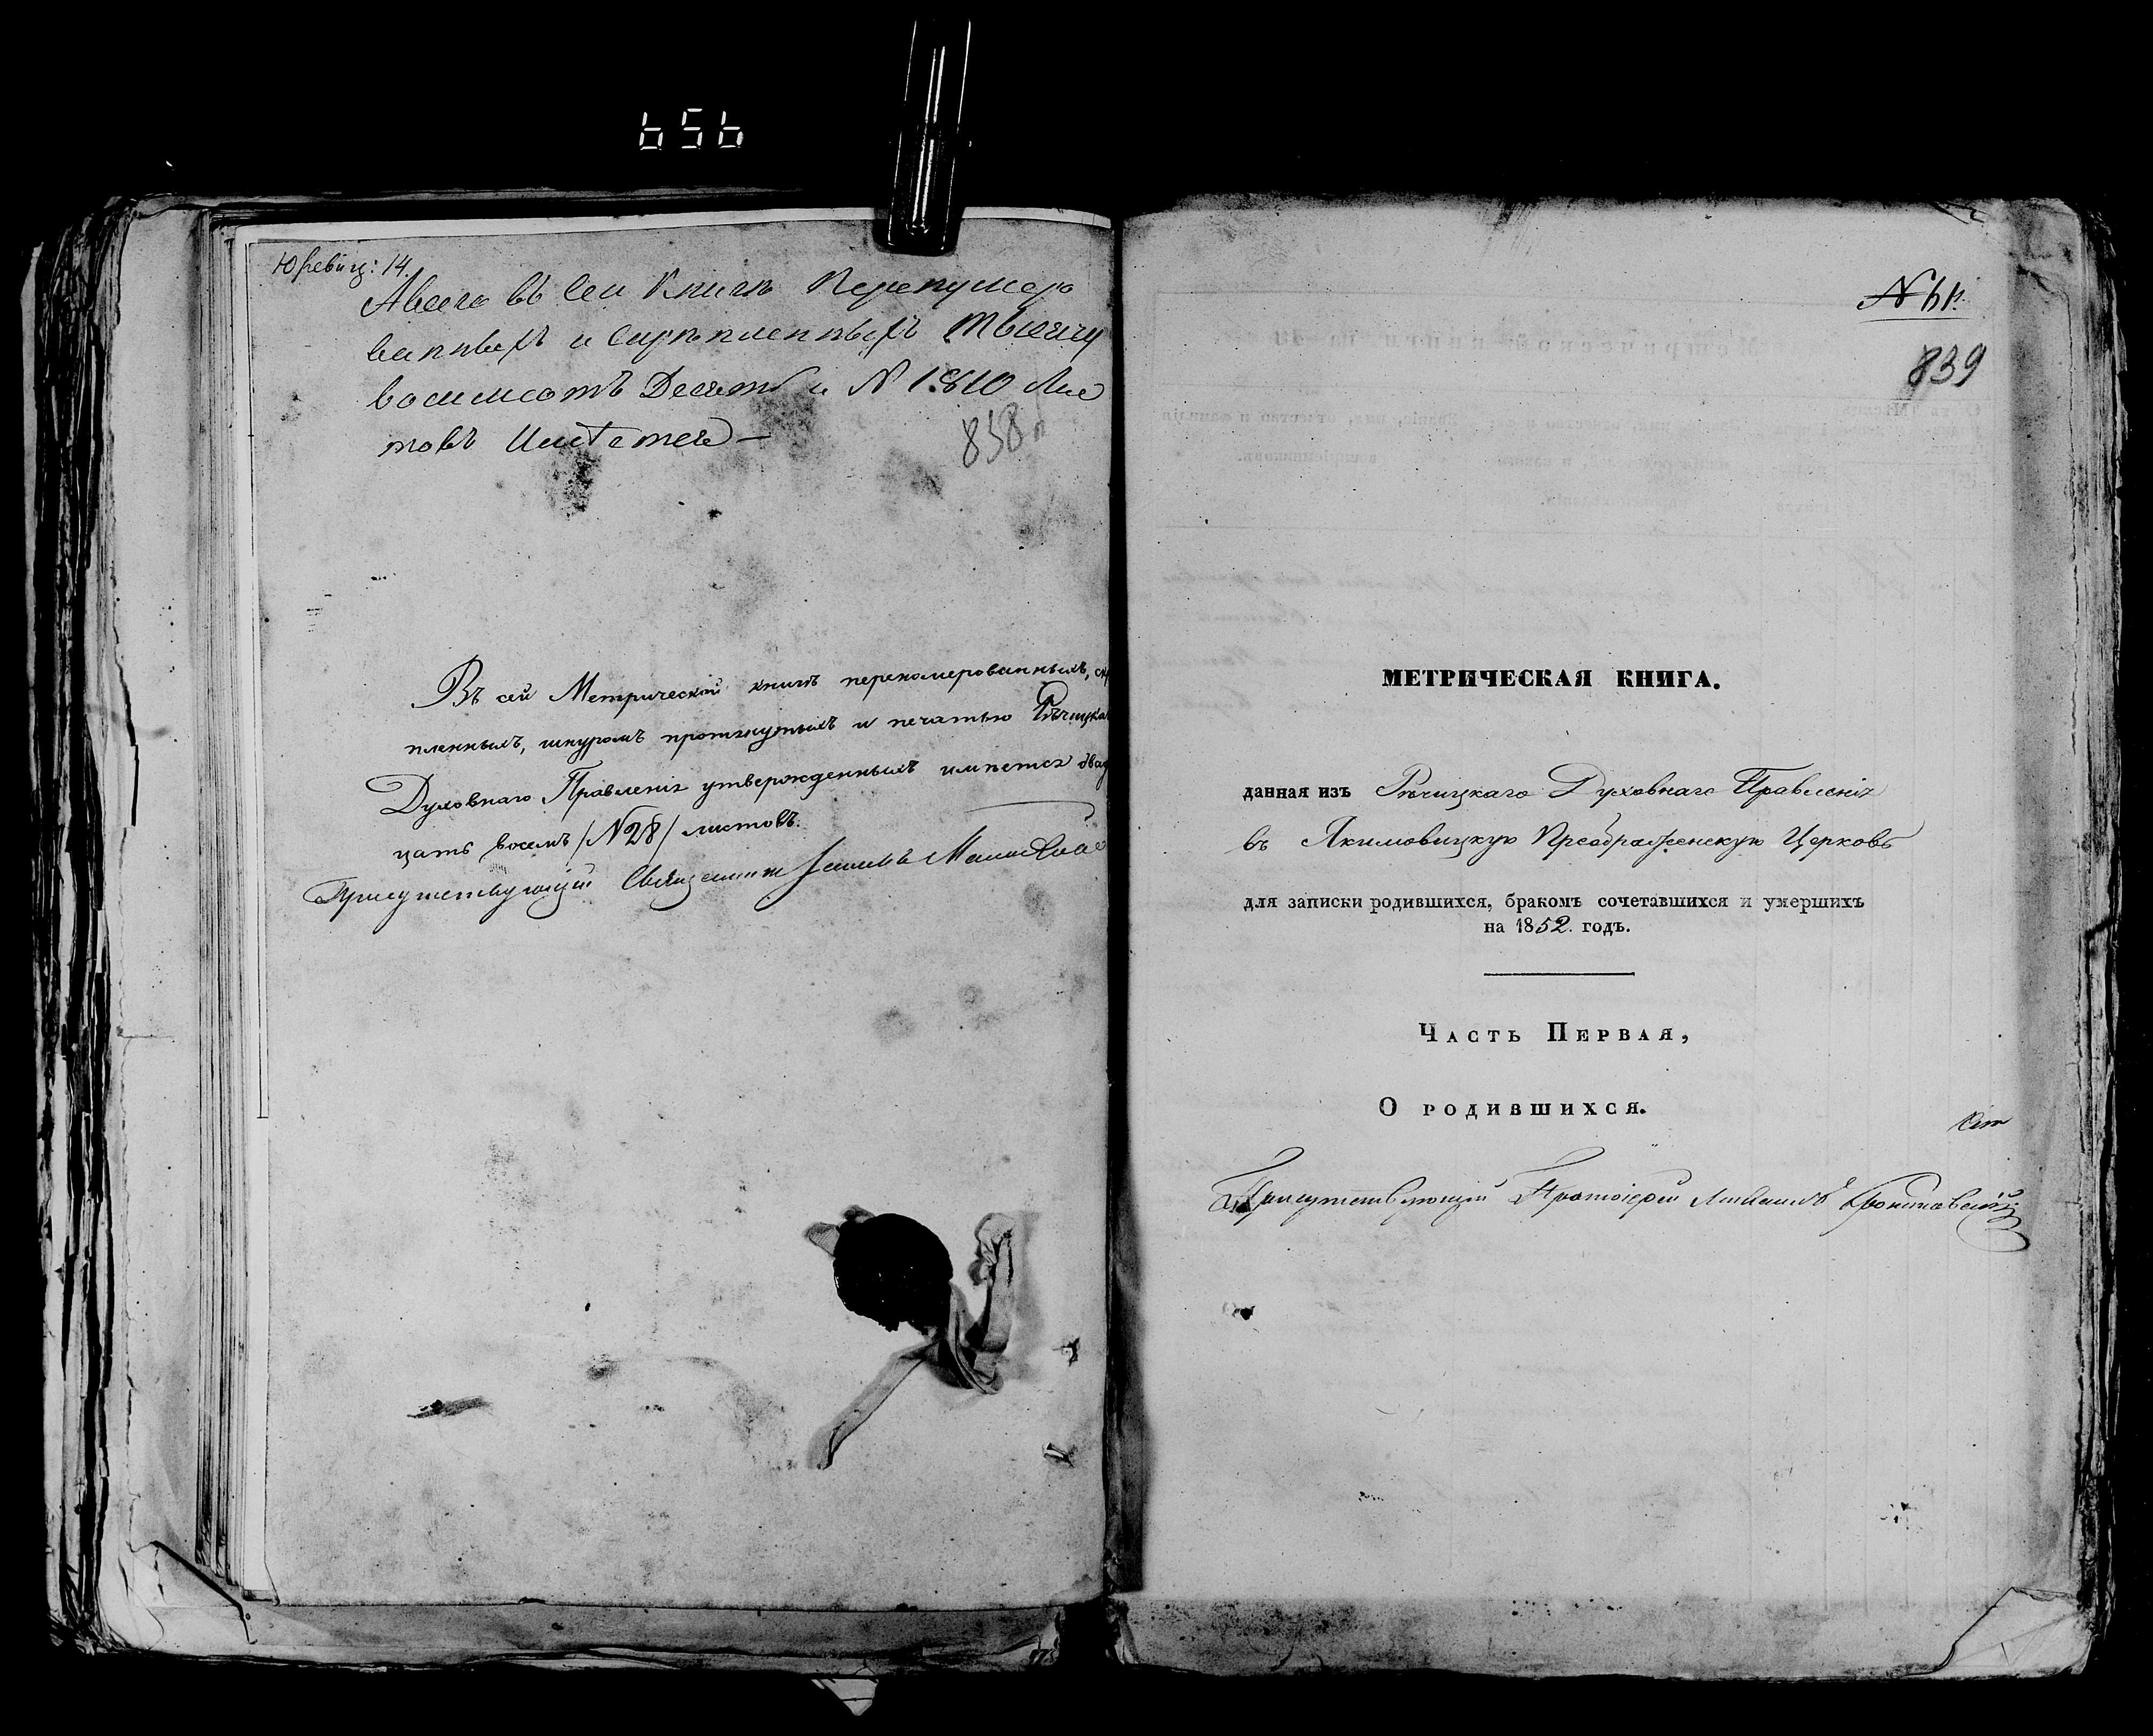 656
Юревич: 14.
Авсего въ сей Книгѣ Перенумеро
ванныхъ и скрѣпленныхъ Тысячу
восемсотъ Десять и № 1810 Лис
товъ
838
Въ сей Метрической книгѣ перенумерованныхъ, скр
пленныхъ, шнуромъ протянутыхъ и печатью Рѣчицка
Духовнаго Правленія утвержденныхъ имѣется двад
цать восемь /№28/ листовъ.
Присутствующій Священник
839
МЕТРИЧЕСКАЯ КНИГА.
данная изъ Рѣчицкаго Духовнаго Правленія
въ Якимовицкую Преображенскую Церковь
для записки родившихся, бракомъ сочетавшихся и умершихъ
на 1852. годъ.
Часть Первая,
О родившихся.
Присутствующій Протоіерей